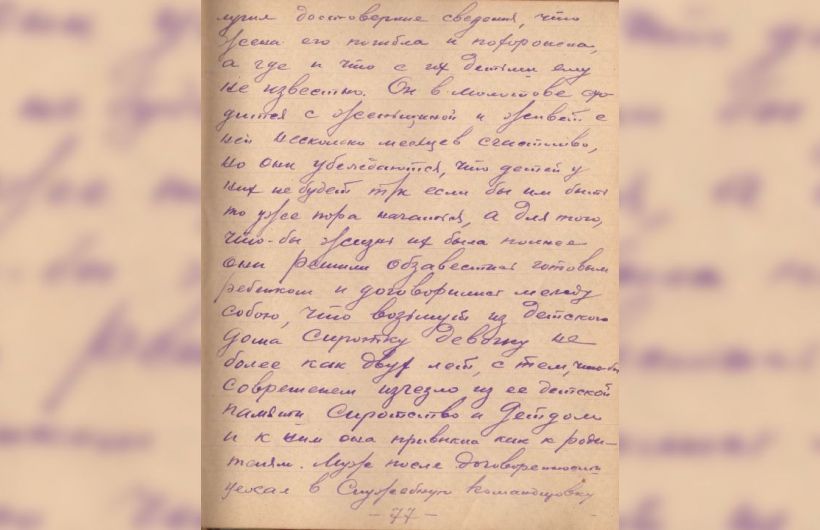 лучил достоверные сведения, что
жена его погибла и похоронена,
а где и что с их детьми ему
не известно. Он в Молотове схо-
дится с женщиной и живет с
ней несколько месяцев счастливо,
но они убеждаются, что детей у
них не будет т/к если бы им быть
то уже пора начаться, а для того,
что-бы жизнь их была полнее
они решили обзавестись готовым
ребенком и договорились между
собою, что возьмут из детского
дома Сиротку девочку не
более как двух лет, с тем, что-бы
современем изчезло из ее детской
памяти Сиротство и Детдом
и к ним она привыкла как к роди-
телям. Муж после договоренности
уехал в Служебную командировку
- 77 -